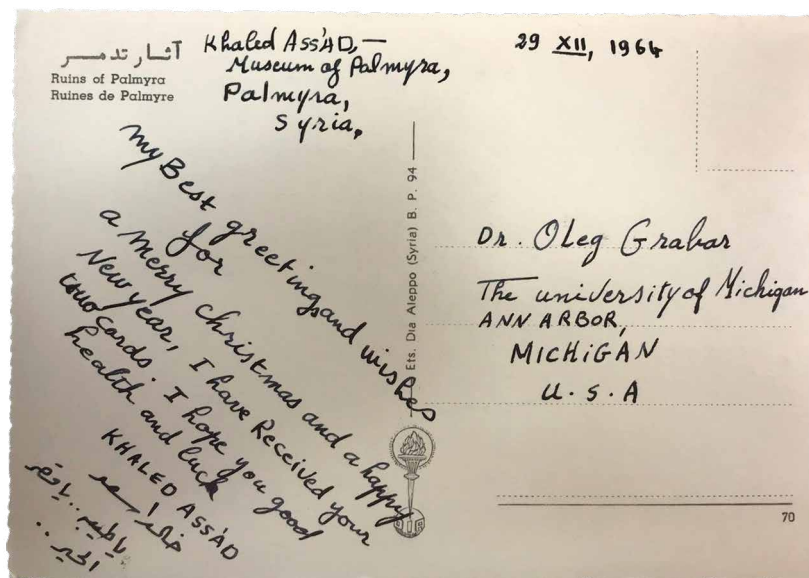 آثار تدمر
Ruins of Palmyra
Ruines de Palmyre
Khaled ASS'AD,—
Museum of Palmyra,
Palmyra,
Syria,
29 XII, 1964
my Best greetings and wishes
for
a merry christmas and a happy
New year, I have Received your
two cards. I hope you good
health and luck
KHALED ASS'AD
خالد اسعد
Ets. Dia Aleppo (Syria) B. P. 94
Dr. OLeg Grabar
The university of Michigan
ANN ARBOR,
MICHIGAN
U. S. A
70